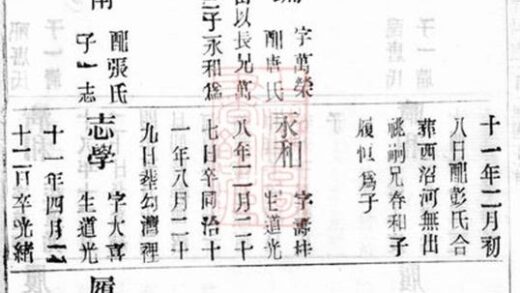 字萬榮
配唐氏
以長兄萬
子永和爲
配張氏
子一志
十一年二月初
八日配彭氏合
葬西沼河無出
祧嗣兄春和子
履恒爲子
永和
字壽桂
生道光
八年二月二十
七日卒同治十
一年八月二十
九日葬勾灣裡
志學
字大喜
生道光
十一年四月二
十二日卒光緒
履